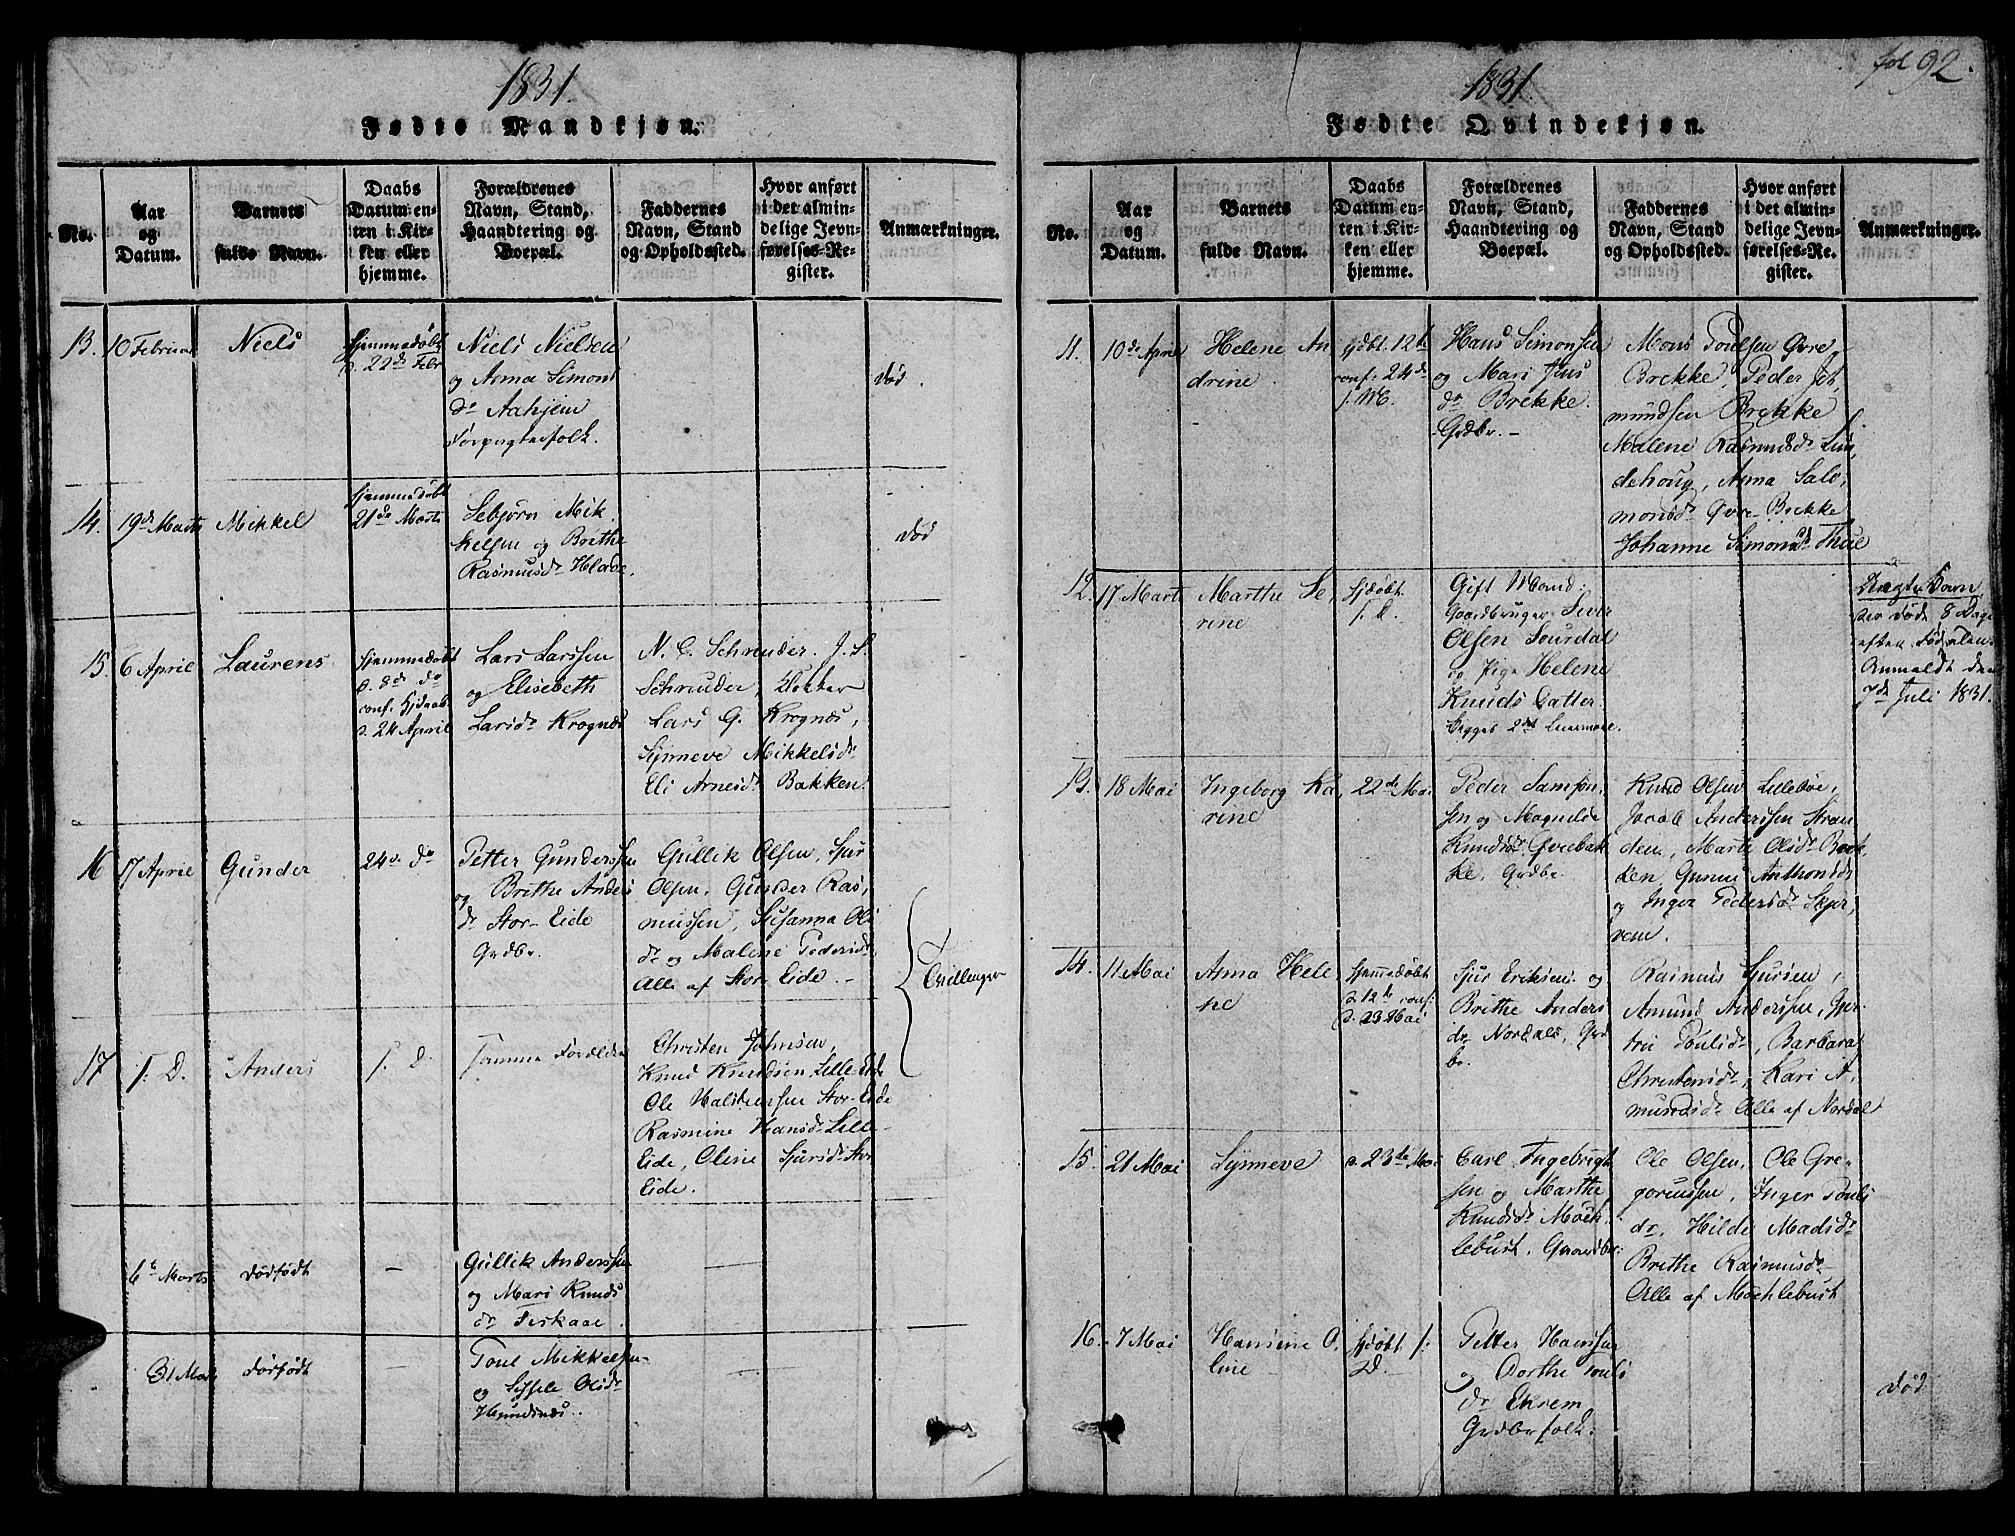 1831.
Fødte Mandkjøn.
No.
Aar
og
Datum.
Barnets
fulde Navn.
Daabs
Datum en-
ten i Kir-
ken eller
hjemme.
Forældrenes
Navn, Stand,
Haandtering og
Boepæl.
Faddernes
Navn, Stand
og Opholdssted.
Hvor anført
i det almin-
delige Jevn-
førelses-Re-
gister.
Anmærkninger.
13. 10 Februar
Niels
Hjemmedøbt
d. 22de Febr
Niels Nielsen
og Anna Simons
dr Aahjem
Forpagterfolk.
død.
14. 19de Marts
Mikkel
Hjemmedøbt
21de Marts
Sebjørn Mik
kelsen og Brithe
Rasmusdr Hladse.
død
15. 6 April
Laurens
Hjemmedøbt
d. 8de do
conf. Hjdaab
d. 24 April
Lars Larssen
og Elisebeth
Larsdr Krognæs
N. C. Schreuder. J. S.
Schreuder, Klokker
Lars G. Krognæs,
Synneve Mikkelsdr
Eli Arnesdr Bakken.
16 17 April
Gunder
24de do
Petter Gunderssen
og Brithe Anders
dr Stor-Eide
Grdbr.
Gullik Olsen, Siur
Olsen, Gunder Ras,
mussen, Susanna Ols
dr og Malene Pedersdr
Alle af Stor-Eide. –
Tvillinger
17 s. D.
Anders
s. D.
Samme Forældre
Christen Johnsen,
Knud Knudsen, Lille-Eide
Ole Halstenssen Stor-Eide
Rasmine Hansdr Lille-
Eide, Oline Sjursdr Stor
Eide.
6te Marts
dødfødt
–
Gullik Anderssen
og Mari Knuds
dr Terkaae.
–
31 Marts
dødfødt
–
Poul Mikkelsen
og Sissele Olsdr
Hundsnæs.
–
fol 92.
1831.
Fødte Qvindekjøn.
No.
Aar
og
Datum.
Barnets
fulde Navn.
Daabs
Datum en-
ten i Kir-
ken eller
hjemme.
Forældrenes
Navn, Stand,
Haandtering og
Boepæl.
Faddernes
Navn, Stand
og Opholdssted.
Hvor anført
i det almin-
delige Jevn-
førelses-Re-
gister.
Anmærkninger.
11. 10de April
Helene An
drine
hjdbt. 12te
conf. 24de
s. M.
Hans Simonsen
og Mari Jens
dr Brekke.
Grdbr. –
Mons Poulsen Øvre
Brekke, Peder Jet,
mundsen Brekke
Malene Rasmusdr Lun,
dehoug, Anna Salo,
monsdr Øvre-Brekke
Johanne Simonsdr Thue
12. 17 Marts
Marthe Se,
rine
hjdøbt
s. D.
Gift Mand
Gaardbruger Siver
Olsen Sourdal
og Pige Helene
Knuds Datter.
Begges 2det Leiermaal.
Uægte Barn,
der døde 8 Dage
efter Fødselen
Anmeldt den
7de Juli 1831.
13. 18 Mai
Ingeborg Ka,
rine
22de Mai
Peder Samson,
sen og Magnilde
Knudsdr Øvrebak
ke, Grdbr.
Knud Olsen Lillebøe,
Jacob Anderssen Stran
den, Marte Olsdr Bak
ken, Gunni Anthonsdr
og Inger Pedersdr Skjer,
vem.
14. 11 Mai
Anna Hele
ne
hjemmedøbt
d. 12te conf.
d. 23 Mai
Sjur Eriksen og
Brithe Anders
dr Nordals, Grd
br.
Rasmus Sjursen,
Amund Anderssen, Ger
tru Poulsdr, Barbara
Christensdr, Kari A,
mundsdr Alle af Nordal
15. 21 Mai
Synneve
d. 23de Mai
Carl Ingebrigt
sen og Marthe
Knudsdr Møch,
lebust, Gaardbr:
Ole Olsen, Ole Gre,
goriussen, Inger Pouls
dr, Hilde Madsdr
Brithe Rasmusdr
Alle af Møchlebust
16. 7 Mai
Hansine O,
line
hjdøbt s.
D. –
Petter Hanssen
og Dorthe Pouls
dr Ehrem
Grdbrfolk.
død